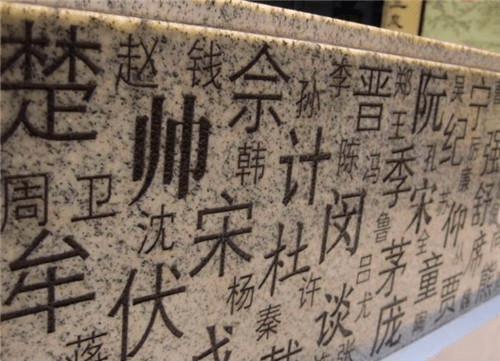 楚 赵 钱 佘 孙 李 晋 郑 阮 吴 宁
帅 韩 计 陈 冯 王 季 孔 纪 强
周 卫 沈 宋 杜 闵 鲁 茅 宋 仰 舒
牟 伏 杨 秦 许 谈 吕 尤 庞 童 贾 席
蒋 戈 张 熊